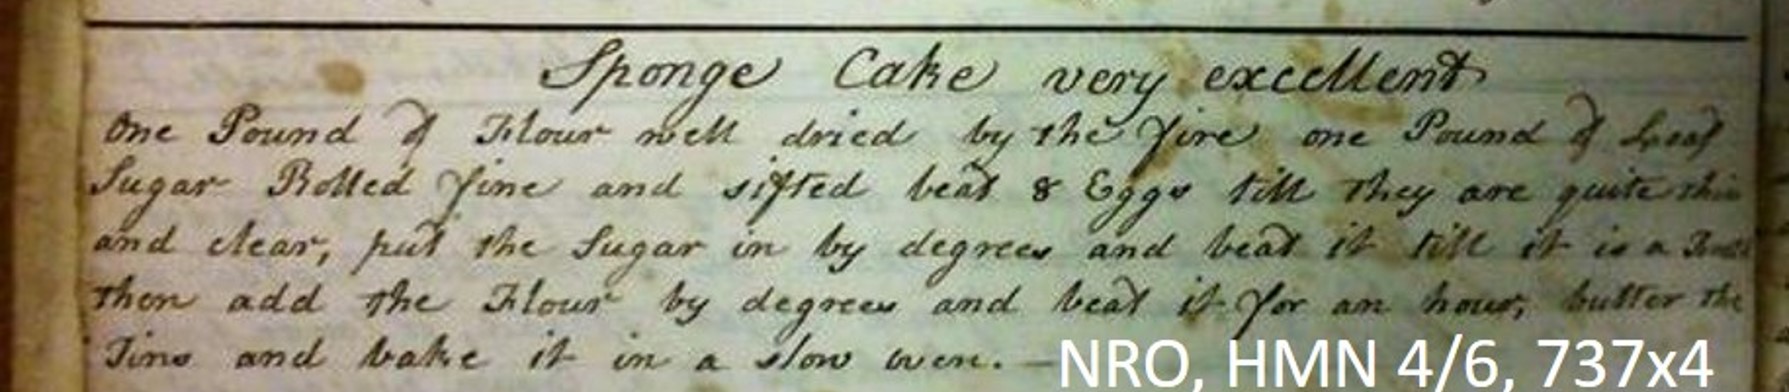 Sponge Cake very excellent
One Pound of Flour well dried by the fire one Pound of Loaf
Sugar Rolled fine and sifted beat 8 Eggs till they are quite thin
and clear, put the Sugar in by degrees and beat it till it is a
then add the Flour by degrees and beat it for an hour, butter the
Tins and bake it in a slow oven. —
NRO, HMN 4/6, 737x4